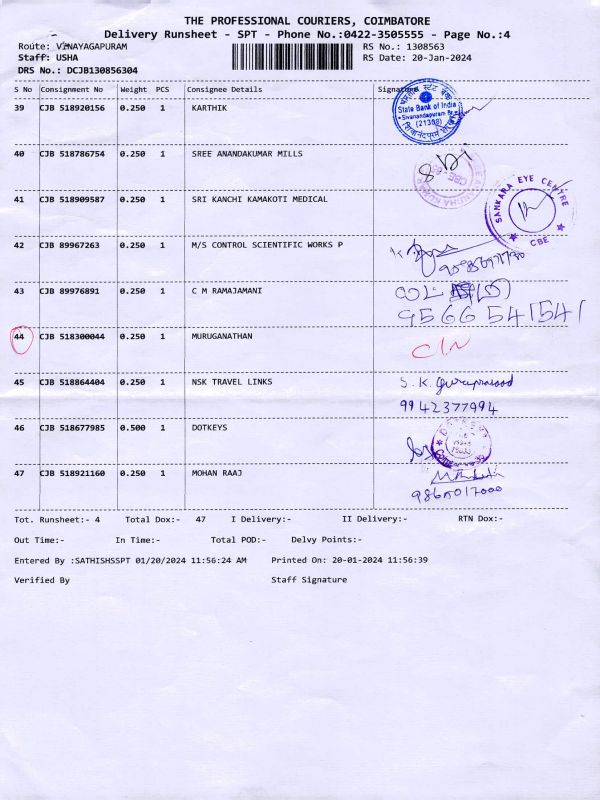 THE PROFESSIONAL COURIERS, COIMBATORE
Delivery Runsheet - SPT - Phone No.:0422-3505555 - Page No.:4
Route: VINAYAGAPURAM RS No.: 1308563
Staff: USHA RS Date: 20-Jan-2024
DRS No.: DCJB130856304
S No Consignment No Weight PCS Consignee Details Signature
39 CJB 518920156 0.250 1 KARTHIK
State Bank of India
(21368)
40 CJB 518786754 0.250 1 SREE ANANDAKUMAR MILLS
41 CJB 518909587 0.250 1 SRI KANCHI KAMAKOTI MEDICAL
SANKARA EYE CENTRE
CBE
42 CJB 89967263 0.250 1 M/S CONTROL SCIENTIFIC WORKS P
43 CJB 89976891 0.250 1 C M RAMAJAMANI
9566541541
44 CJB 518300044 0.250 1 MURUGANATHAN
45 CJB 518864404 0.250 1 NSK TRAVEL LINKS S.K. Guruprasaad
9942377994
46 CJB 518677985 0.500 1 DOTKEYS
47 CJB 518921160 0.250 1 MOHAN RAAJ
Tot. Runsheet:- 4 Total Dox:- 47 I Delivery:- II Delivery:- RTN Dox:-
Out Time:- In Time:- Total POD:- Delvy Points:-
Entered By :SATHISHSSPT 01/20/2024 11:56:24 AM Printed On: 20-01-2024 11:56:39
Verified By Staff Signature